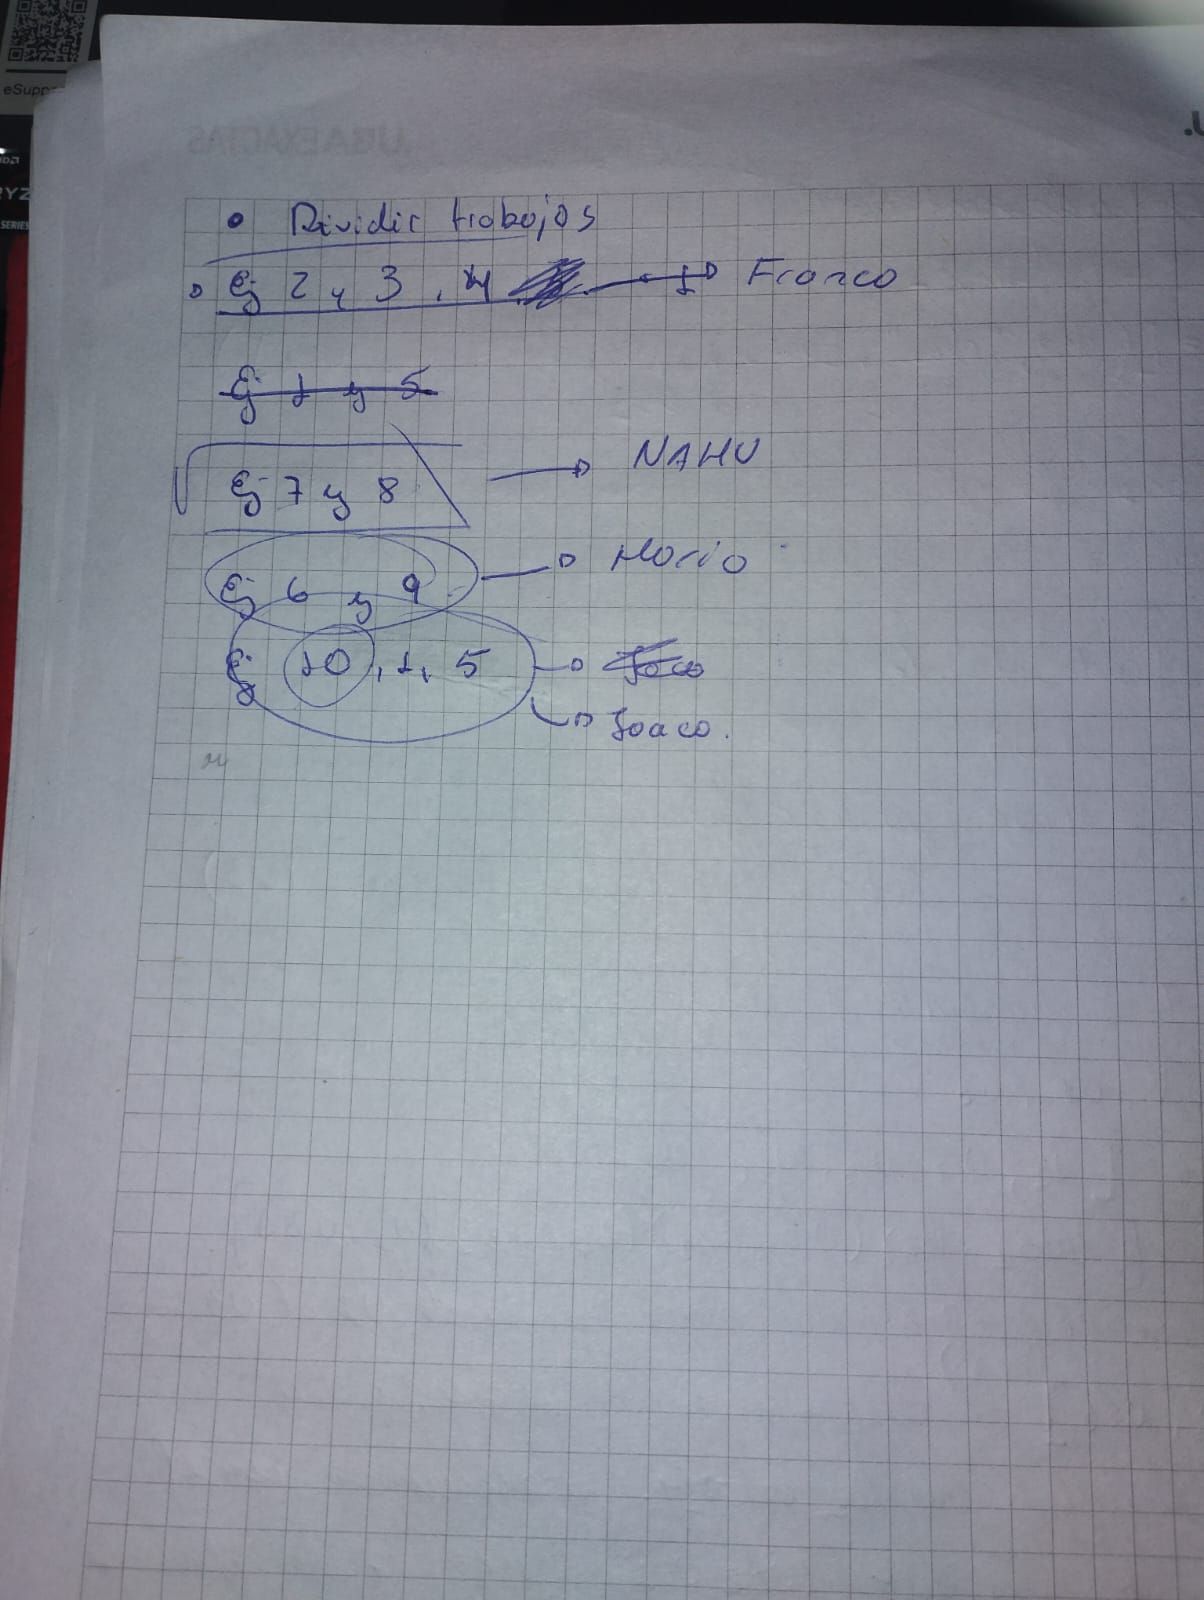 eSuppo
RYZ
SERIES
UBAEXACTAS
• Dividir trabajos
Ej 2 y 3, 4 → Franco
Ej 1 y 5
Ej 7 y 8 → NAHU
Ej 6 y 9 → Mario
Ej 10, 1, 5 → Joaco
→ Joaco.